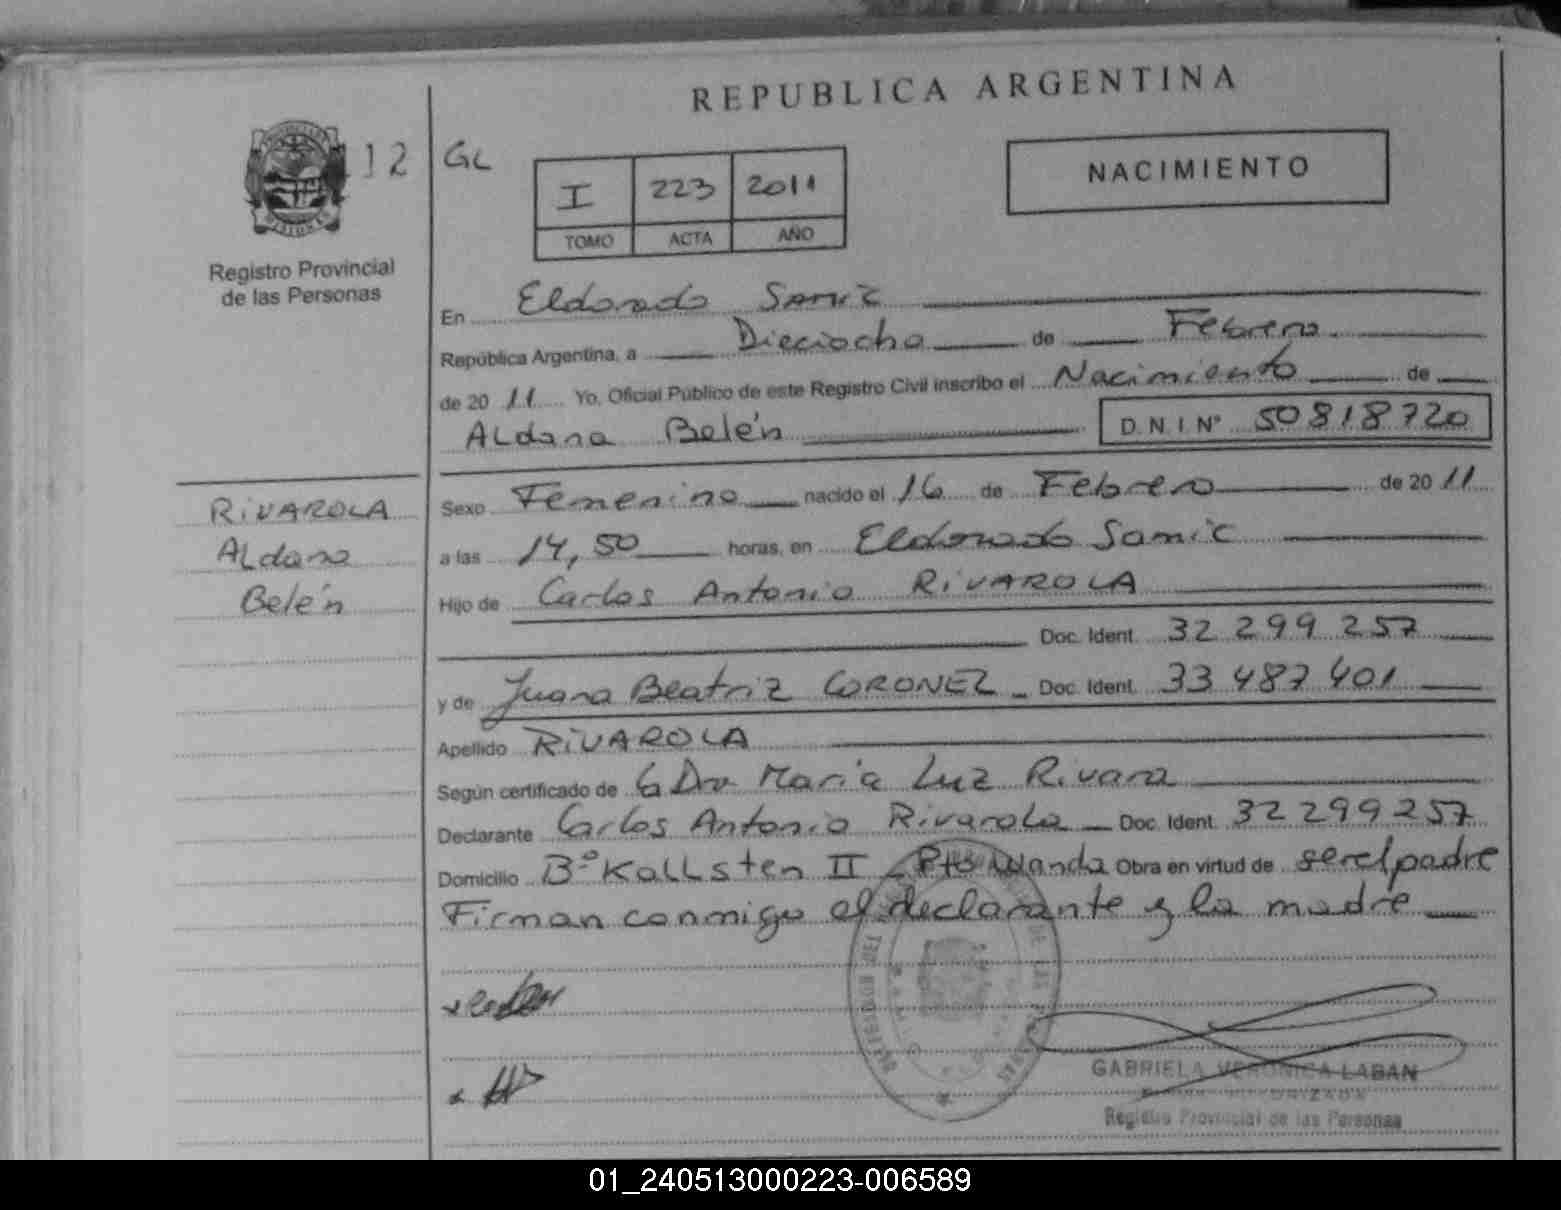 REPUBLICA ARGENTINA
12
GL
I 223 2011
TOMO ACTA AÑO
NACIMIENTO
Registro Provincial
de las Personas
En Eldorado Samic
República Argentina, a Dieciocho de Febrero
de 20 11 Yo, Oficial Público de este Registro Civil inscribo el Nacimiento de
Aldana Belén D.N.I.Nº 50818720
RIVAROLA
Aldana
Belén
Sexo Femenino nacido el 16 de Febrero de 20 11
a las 14,50 horas, en Eldorado Samic
Hijo de Carlos Antonio RIVAROLA
Doc. Ident. 32 299 257
y de Juana Beatriz CORONEZ Doc. Ident. 33 487 401
Apellido RIVAROLA
Según certificado de la Dra Maria Luz Rivara
Declarante Carlos Antonio Rivarola Doc. Ident. 32299257
Domicilio Bº Kallsten II Pto Wanda Obra en virtud de ser el padre
Firman conmigo el declarante y la madre
GABRIELA VERONICA LABAN
Registro Provincial de las Personas
01_240513000223-006589